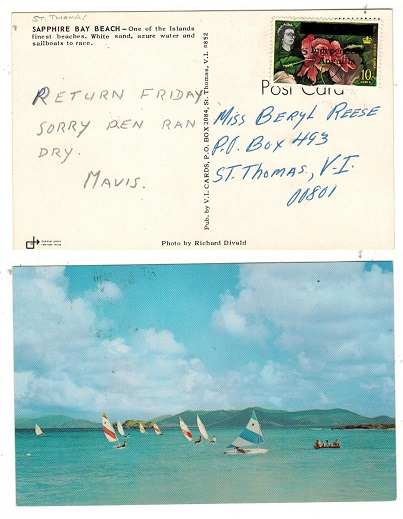 ST. THOMAS
SAPPHIRE BAY BEACH — One of the Islands
finest beaches. White sand, azure water and
sailboats to race.
RETURN FRIDAY
SORRY PEN RAN
DRY.
MAVIS.
Pub. by V.I. CARDS, P.O. BOX 2084, St. Thomas, V.I. #852
Independent
Anguilla
10
Post Card
MISS BERYL REESE
P.O. BOX 493
ST. THOMAS, V.I.
00801
Photo by Richard Divald